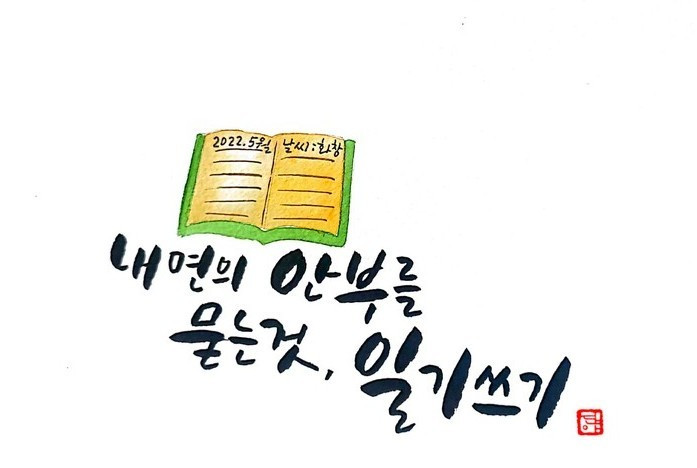 2022.5월 날씨:화창
내면의 안부를
묻는것, 일기쓰기